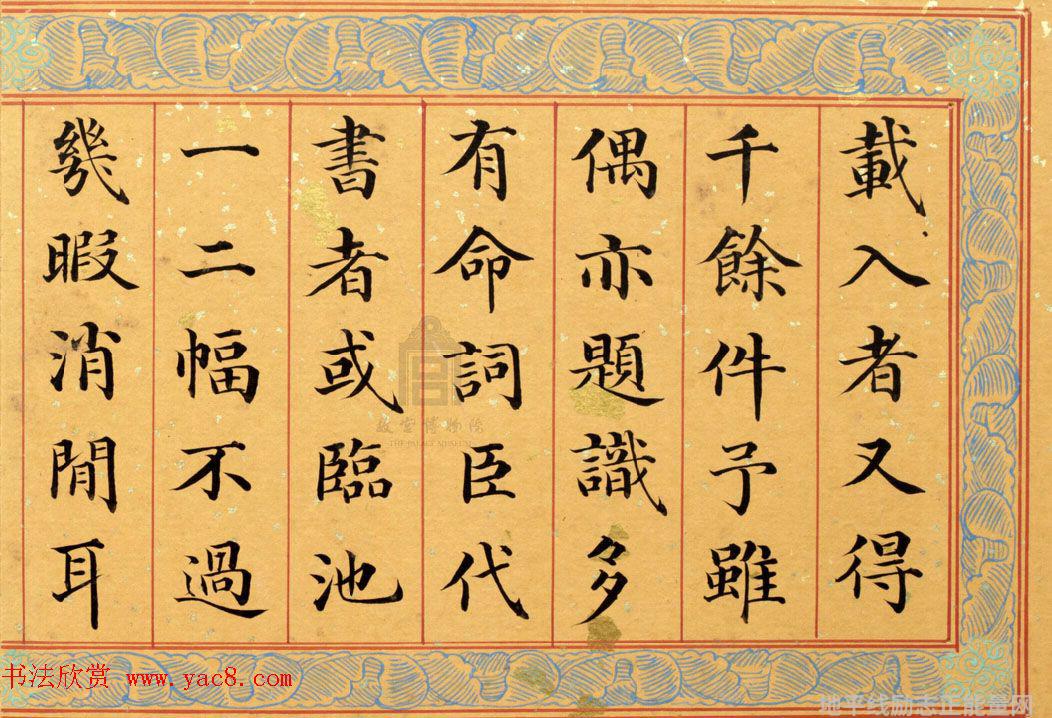 載入者又得
千餘件予雖
偶亦題識多
有命詞臣代
書者或臨池
一二幅不過
幾暇消閒耳
故宮博物院
THE PALACE MUSEUM
书法欣赏 www.yac8.com
地平线励志正能量网